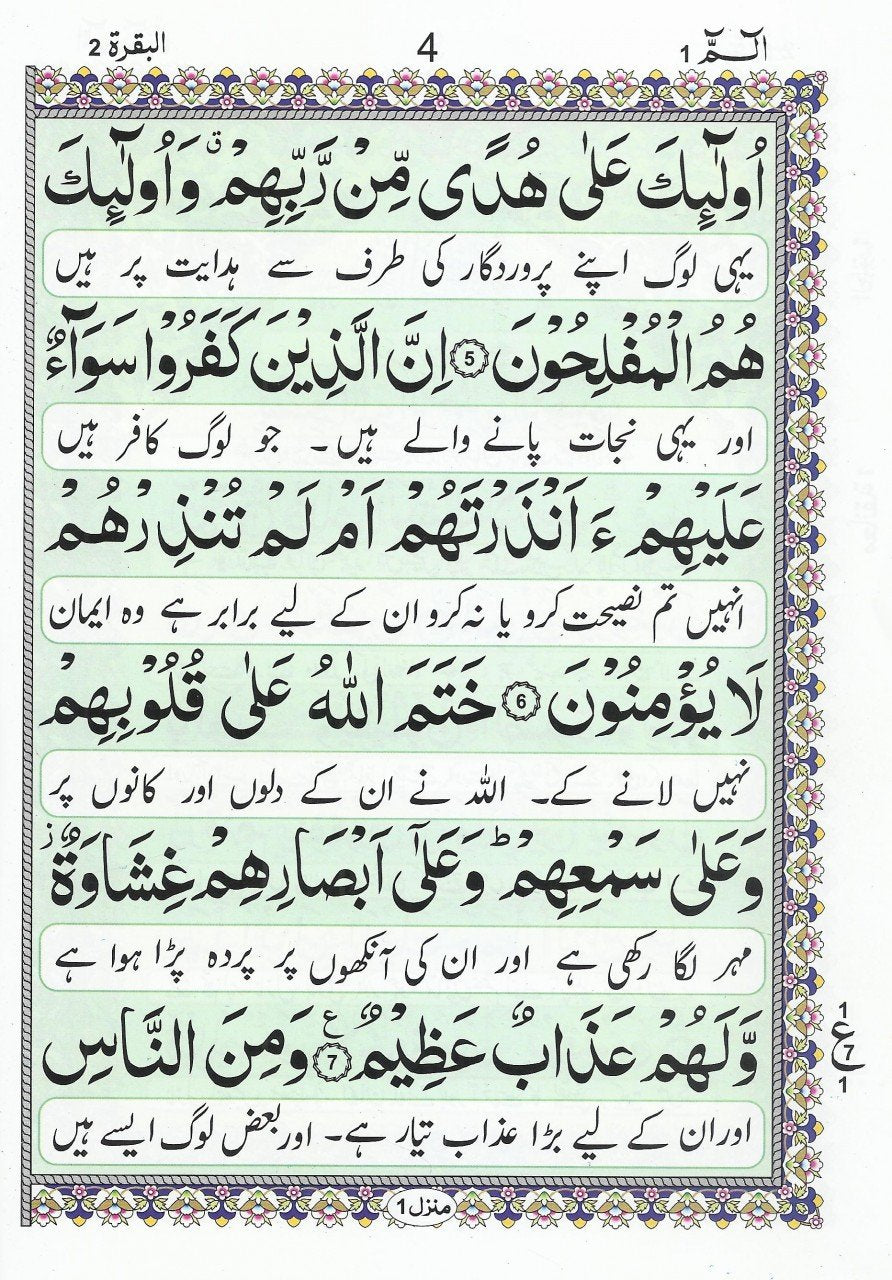 الٓـمّٓ 1
4
البقرة 2
اُولٰٓئِكَ عَلٰى هُدًى مِّنْ رَّبِّهِمْ ۗ وَاُولٰٓئِكَ
یہی لوگ اپنے پروردگار کی طرف سے ہدایت پر ہیں
هُمُ الْمُفْلِحُوْنَ 5 اِنَّ الَّذِيْنَ كَفَرُوْا سَوَآءٌ
اور یہی نجات پانے والے ہیں۔ جو لوگ کافر ہیں
عَلَيْهِمْ ءَاَنْذَرْتَهُمْ اَمْ لَمْ تُنْذِرْهُمْ
انہیں تم نصیحت کرو یا نہ کرو ان کے لیے برابر ہے وہ ایمان
لَا يُؤْمِنُوْنَ 6 خَتَمَ اللّٰهُ عَلٰى قُلُوْبِهِمْ
نہیں لانے کے۔ اللہ نے ان کے دلوں اور کانوں پر
وَعَلٰى سَمْعِهِمْ ؕ وَعَلٰٓى اَبْصَارِهِمْ غِشَاوَةٌ ز
مہر لگا رکھی ہے اور ان کی آنکھوں پر پردہ پڑا ہوا ہے
وَّلَهُمْ عَذَابٌ عَظِيْمٌ 7 ع وَمِنَ النَّاسِ
1
ع 7
1
اور ان کے لیے بڑا عذاب تیار ہے۔ اور بعض لوگ ایسے ہیں
منزل 1